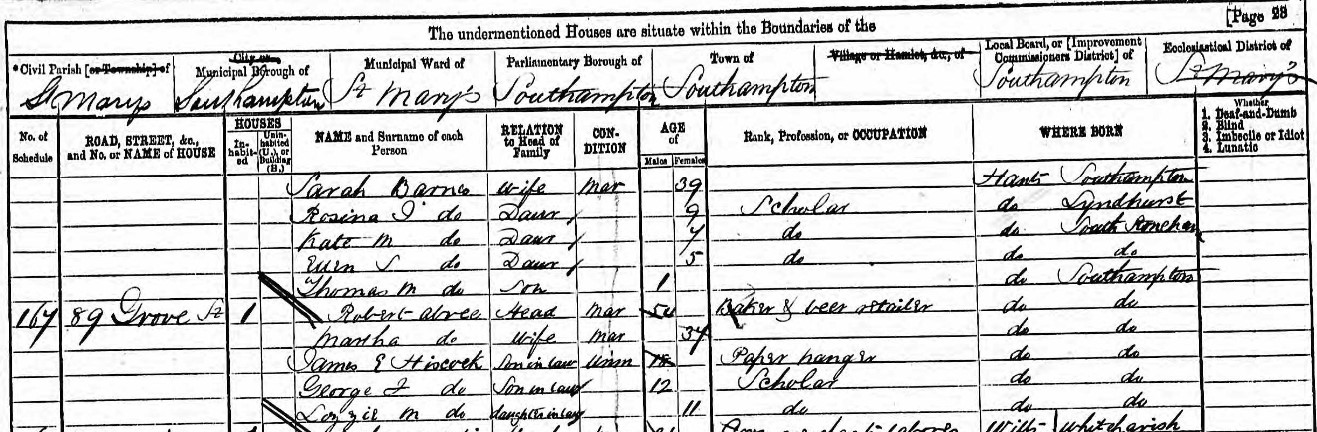 The undermentioned Houses are situate within the Boundaries of the [Page 23
*Civil Parish [or Township] of City or Municipal Borough of Municipal Ward of Parliamentary Borough of Town of Village or Hamlet, &c., of Local Board, or [Improvement Commissioners District] of Ecclesiastical District of
St Marys Southampton St Mary's Southampton Southampton Southampton St Mary's
No. of Schedule ROAD, STREET, &c., and No. or NAME of HOUSE HOUSES Inhabited Uninhabited (U.), or Building (B.) NAME and Surname of each Person RELATION to Head of Family CONDITION AGE of Males Females Rank, Profession, or OCCUPATION WHERE BORN Whether 1. Deaf-and-Dumb 2. Blind 3. Imbecile or Idiot 4. Lunatic
Sarah Barnes Wife Mar 39 Hants Southampton
Rosina J do Daur 9 Scholar do Lyndhurst
Kate M do Daur 7 do do South Stoneham
Ellen S do Daur 5 do do do
Thomas M do Son 1 do Southampton
167 89 Grove St 1 Robert Abree Head Mar 54 Baker & beer retailer do do
Martha do Wife Mar 37 do do
James E Hiscock Son in law Unm 18 Paper hanger do do
George F do Son in law 12 Scholar do do
Lizzie M do daughter in law 11 do do do
Wilts Whiteparish